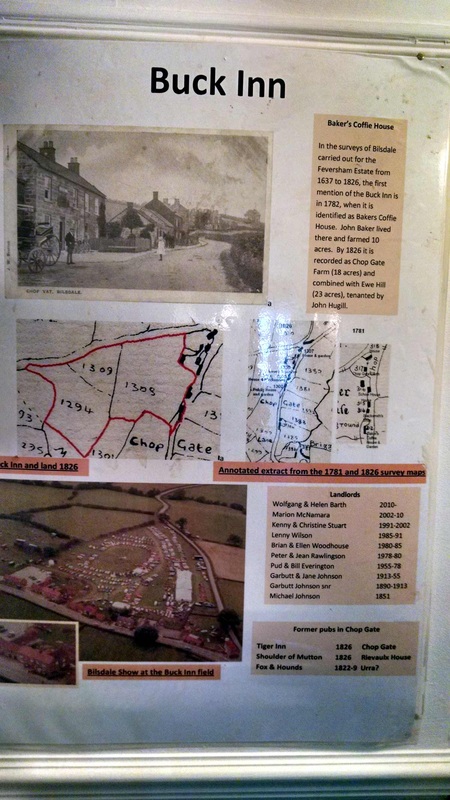 Buck Inn
CHOP GAT, BILSDALE.
Baker's Coffie House
In the surveys of Bilsdale
carried out for the
Feversham Estate from
1637 to 1826, the first
mention of the Buck Inn is
in 1782, when it is
identified as Bakers Coffie
House. John Baker lived
there and farmed 10
acres. By 1826 it is
recorded as Chop Gate
Farm (18 acres) and
combined with Ewe Hill
(23 acres), tenanted by
John Hugill.
1309
1308
1294
1301
Chop Gate
ck Inn and land 1826
1781
Chop Gate
Annotated extract from the 1781 and 1826 survey maps
Landlords
Wolfgang & Helen Barth 2010-
Marion McNamara 2002-10
Kenny & Christine Stuart 1991-2002
Lenny Wilson 1985-91
Brian & Ellen Woodhouse 1980-85
Peter & Jean Rawlinson 1978-80
Pud & Bill Everington 1955-78
Garbutt & Jane Johnson 1913-55
Garbutt Johnson snr 1890-1913
Michael Johnson 1851
Former pubs in Chop Gate
Tiger Inn 1826 Chop Gate
Shoulder of Mutton 1826 Rievaulx House
Fox & Hounds 1822-9 Urra?
Bilsdale Show at the Buck Inn field